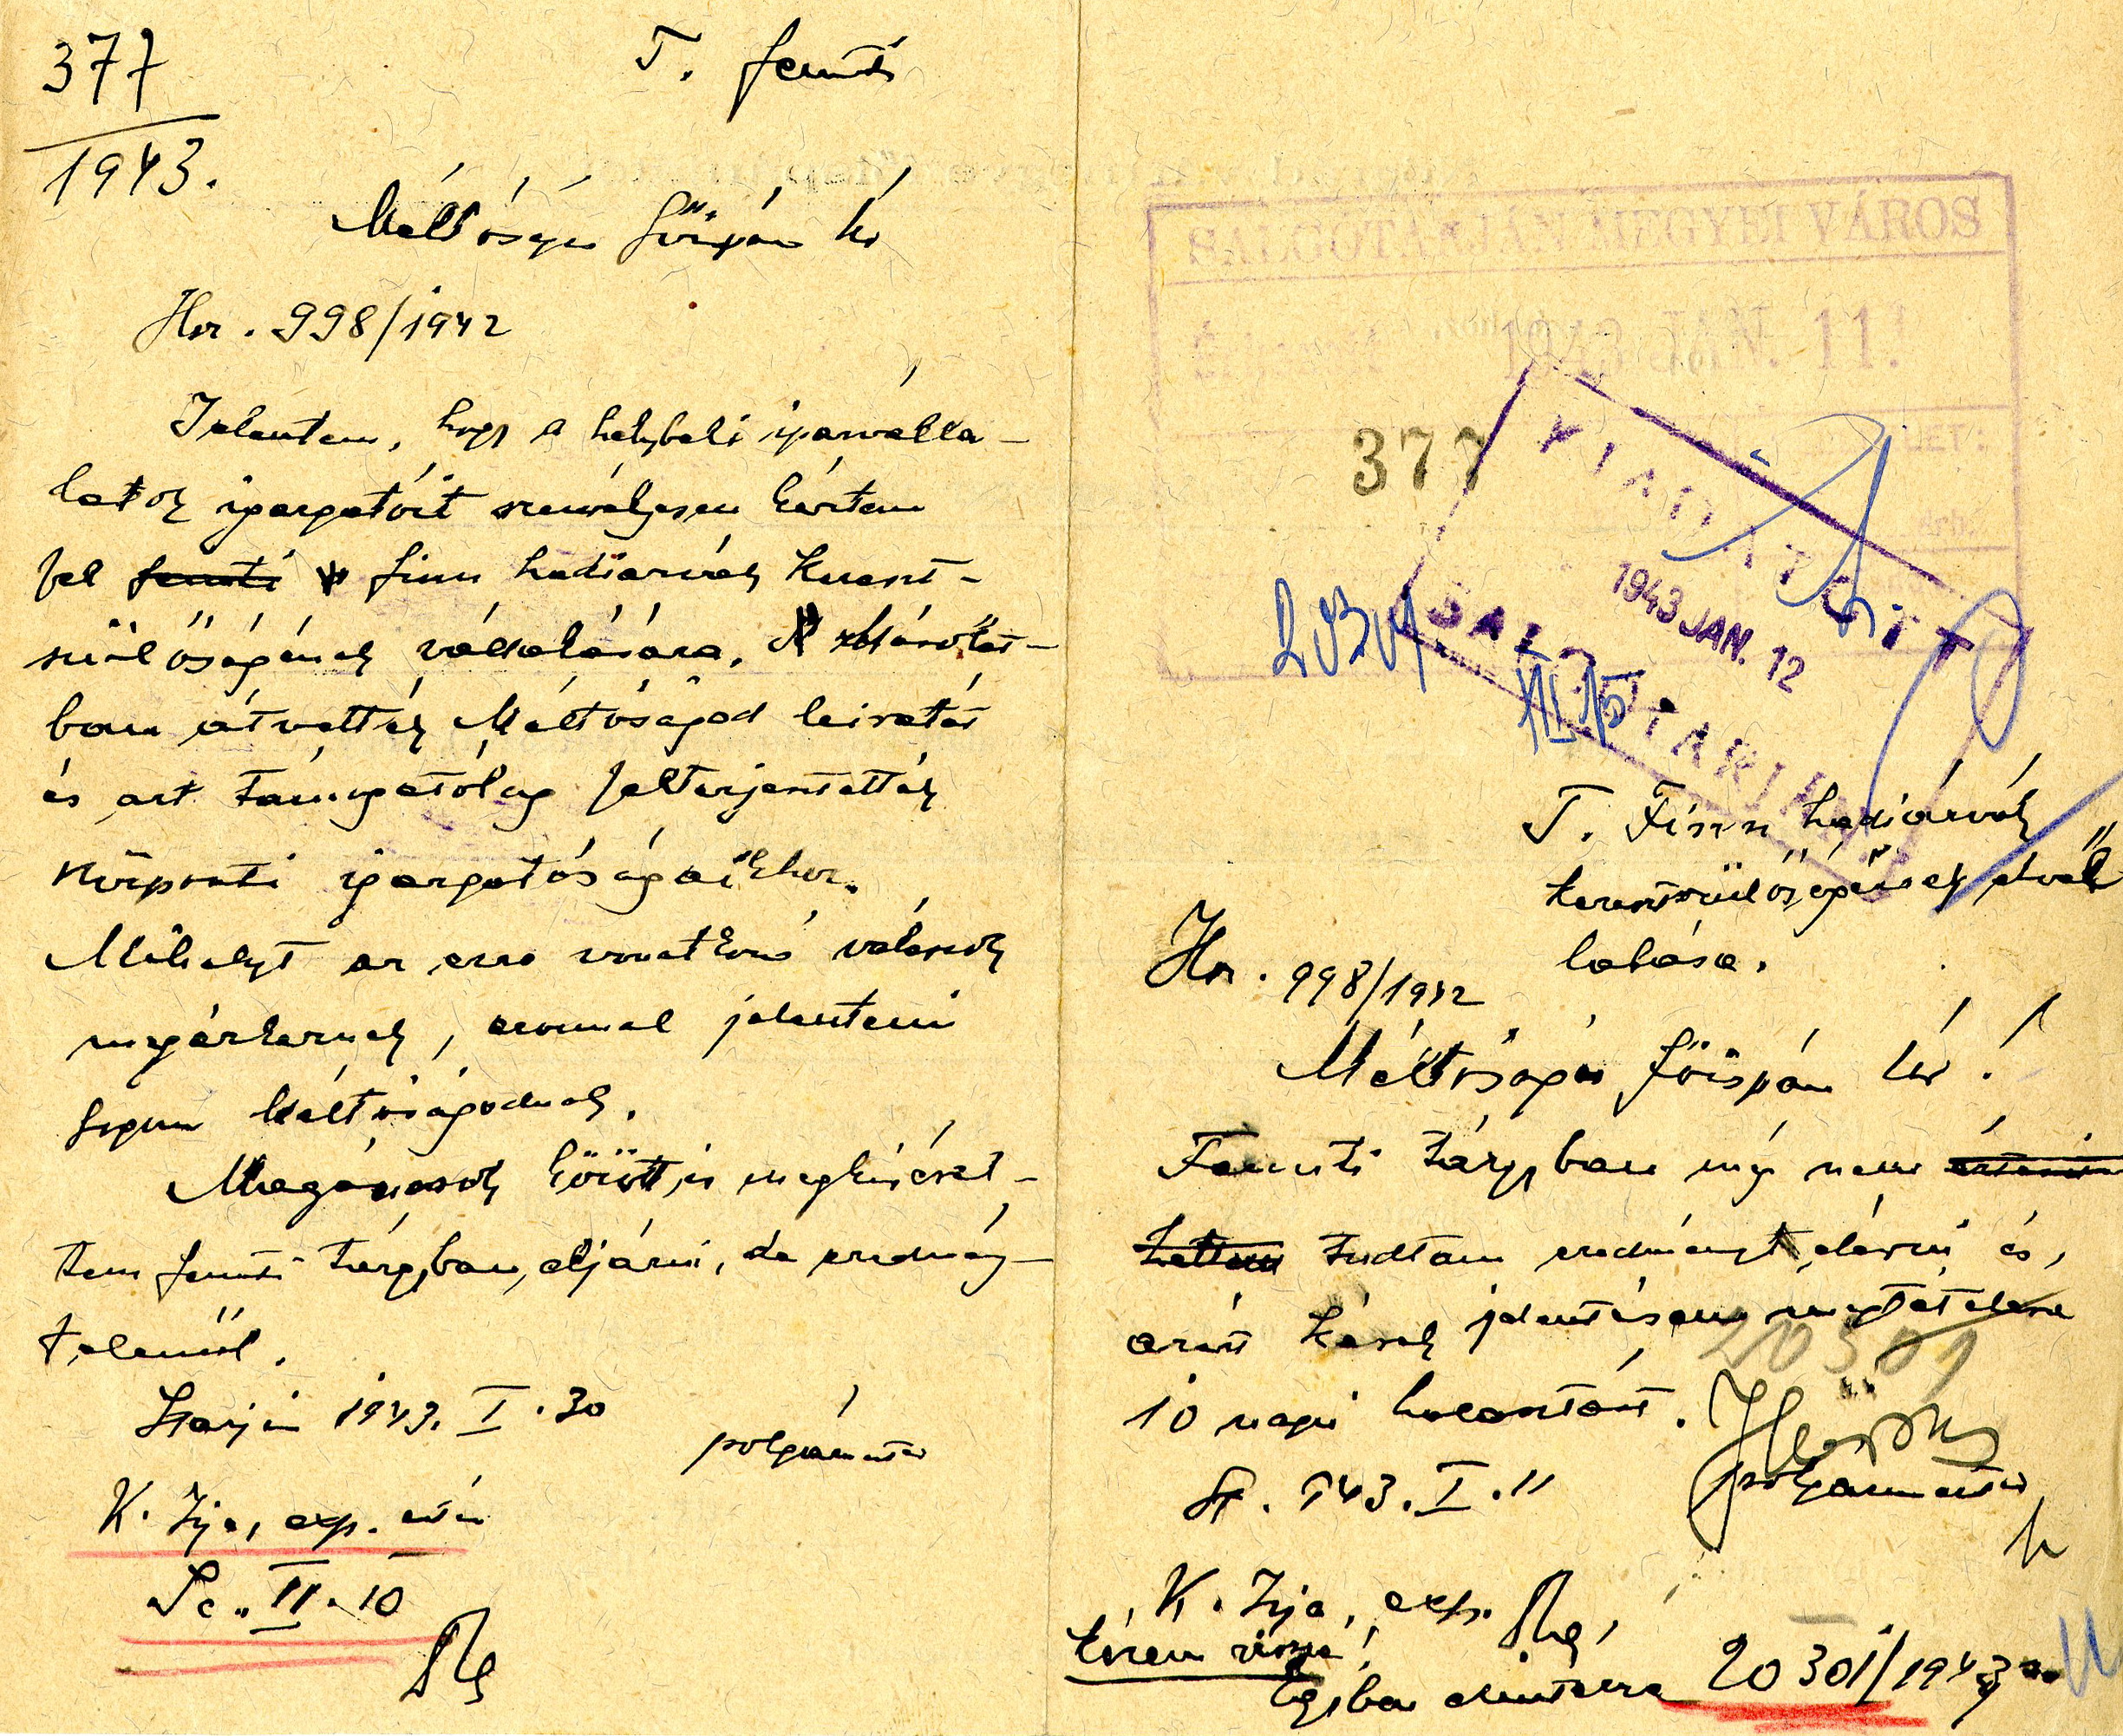 377
1943.
T. fenti
Méltóságos főispán úr
Hr. 998/1942
Jelentem, hogy a helybeli iparválla-
latok igazgatóit személyesen kértem
fel fenti finn hadiárvák kereszt-
szülőségének vállalására.
ban átvették Méltóságod leiratát
és azt támogatólag felterjesztették
központi igazgatóságaikhoz.
Mihelyt az erre vonatkozó válaszok
megérkeznek, azonnal jelenteni
fogom Méltóságodnak.
Magánosok között is megkísérel-
tem fenti tárgyban eljárni, de eredmény-
telenül.
Starján 1943. I. 30
polgármester
K. Irja, exp. után
II. 10
SALGÓTARJÁN MEGYEI VÁROS
1943 JAN. 11.
377
KIADATOTT
1943 JAN. 12
SALGÓTARJÁN
III 15
T. Finn hadiárvák
keresztszülőségének elvál
lalása.
Hr. 998/1942
Méltóságos főispán úr!
Fenti tárgyban még nem
tudtam eredményt elérni és,
azért kérek jelentésem megtételére
10 napi halasztást.
20301
St. 943. I. 11
polgármester
K. Irja, exp.
kérem vissza!
20301/1943